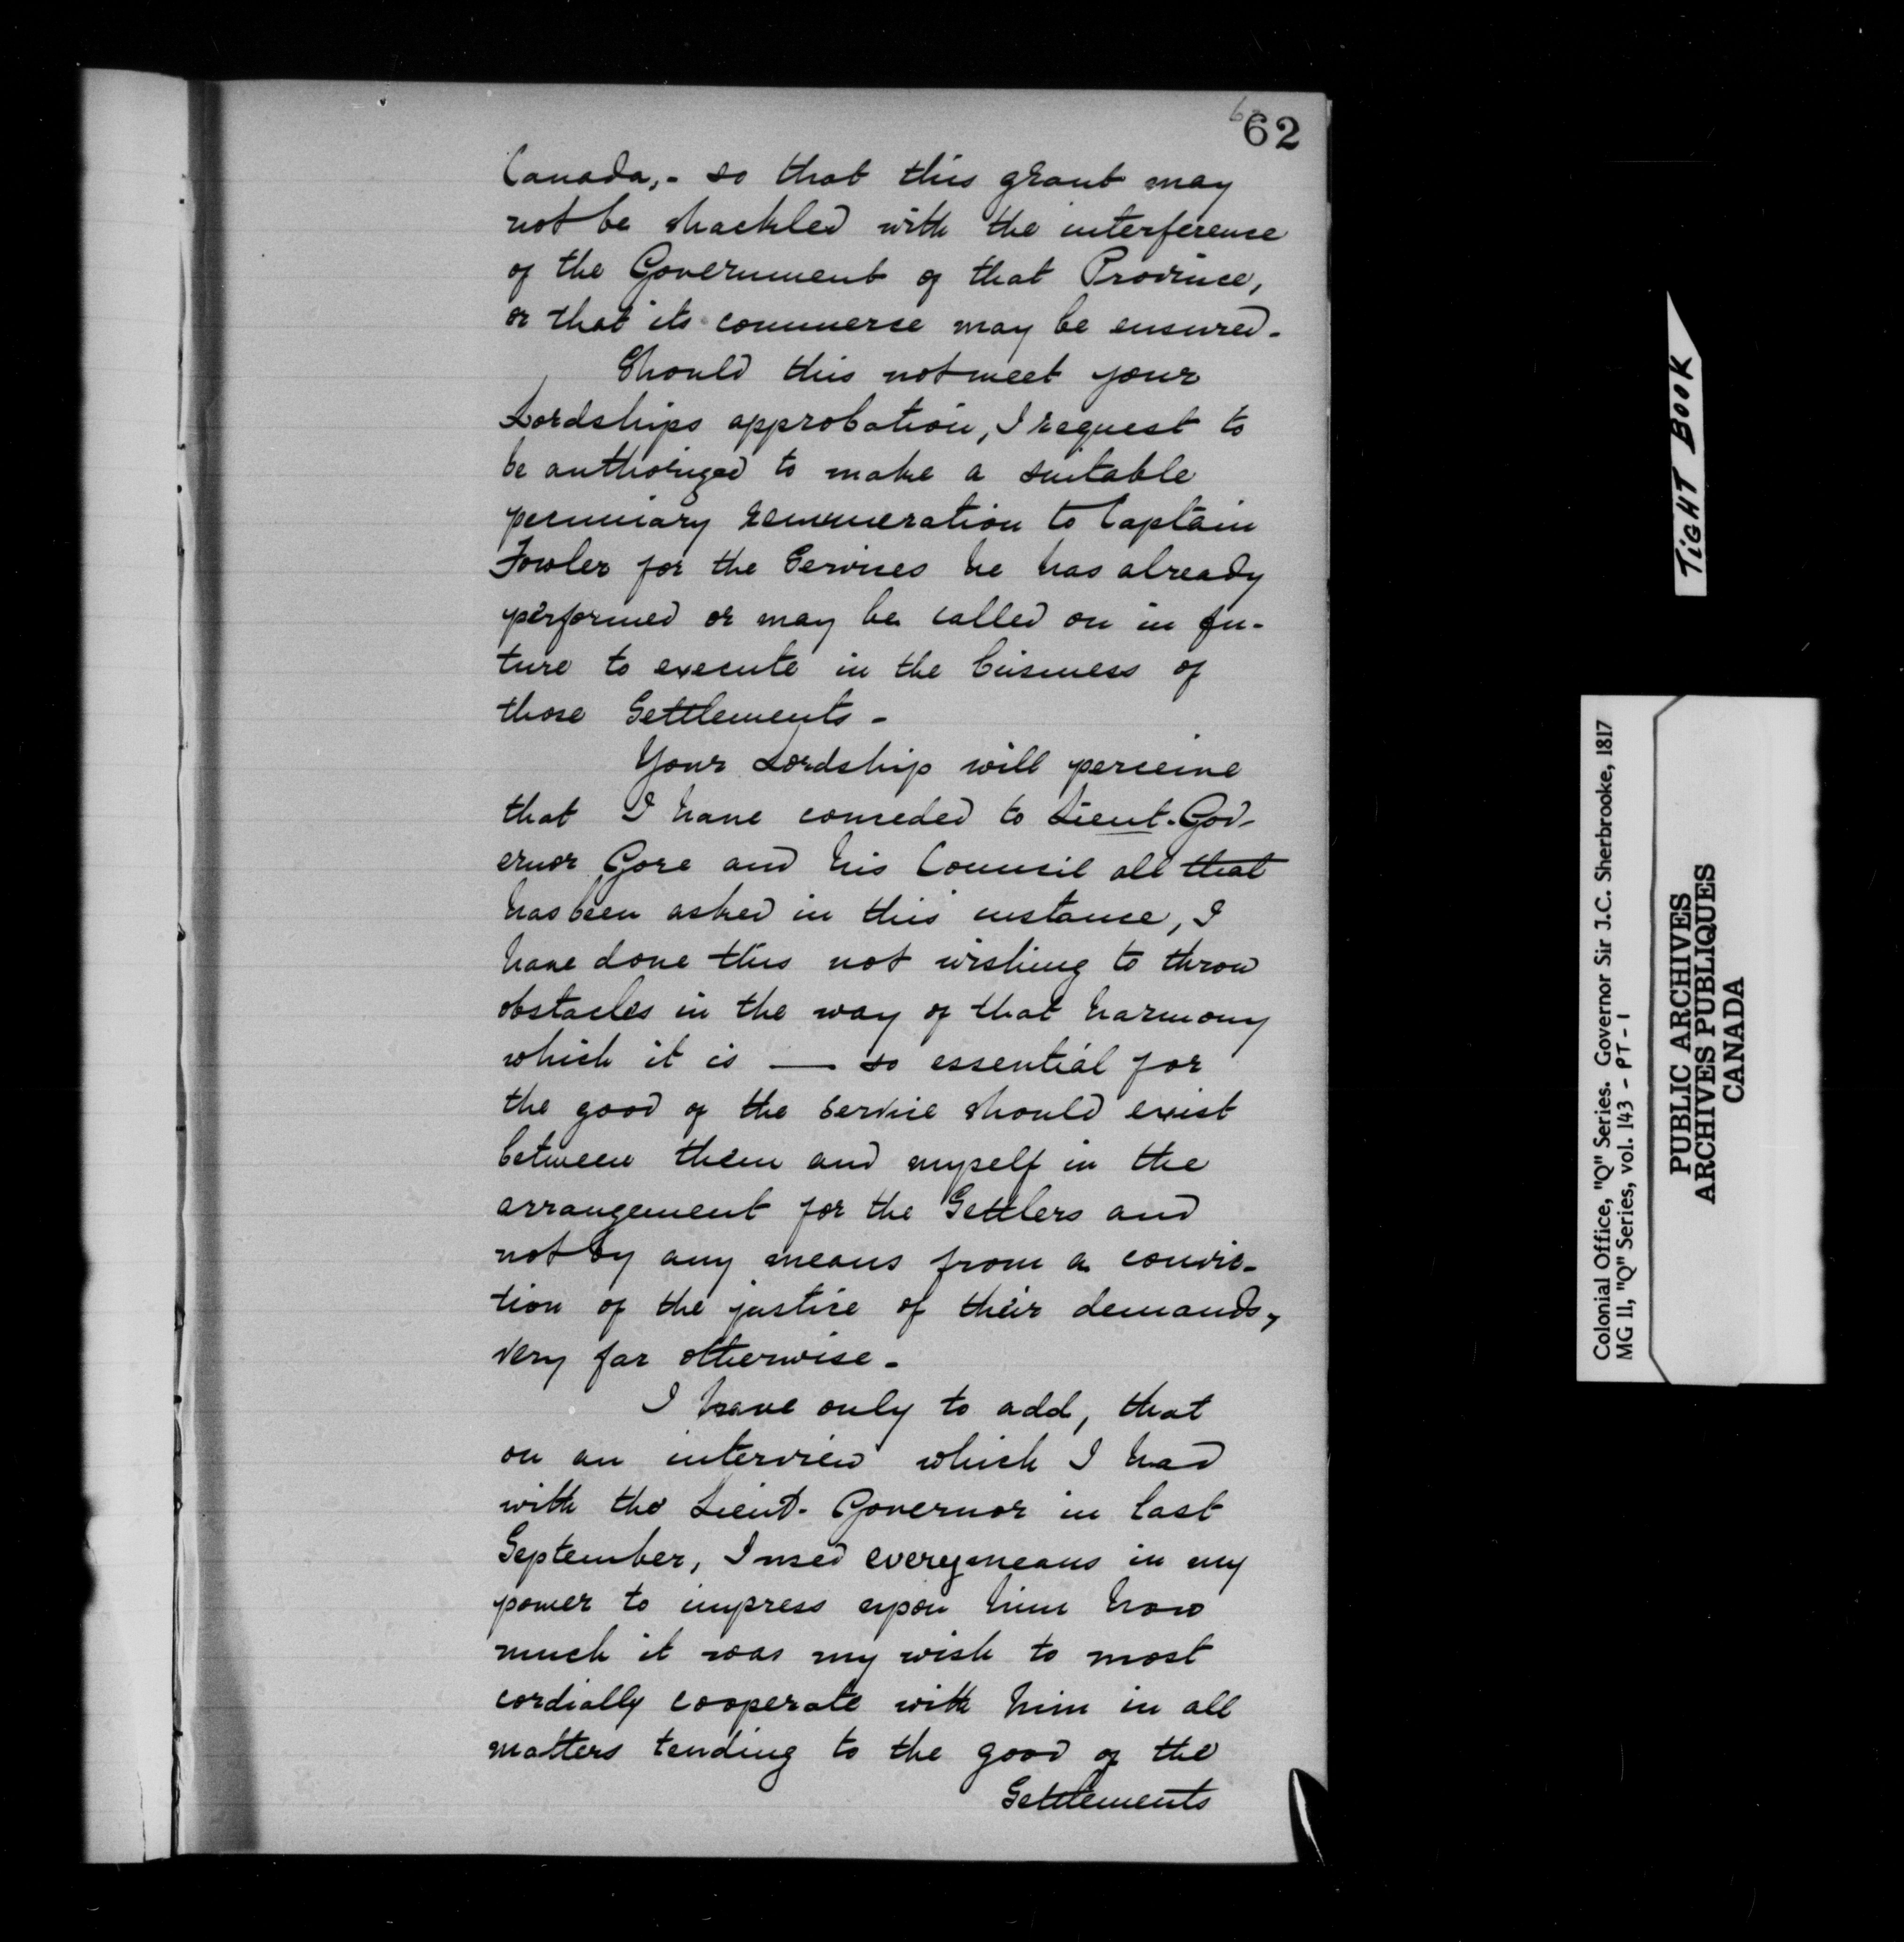 62
Canada,- so that this grant may
not be shackled with the interference
of the Government of that Province,
or that its commerce may be ensured-
Should this not meet your
Lordships approbation, I request to
be authorized to make a suitable
pecuniary remuneration to Captain
Fowler for the Services he has already
performed or may be called on in fu-
ture to execute in the business of
those Settlements-
Your Lordship will perceive
that I have conceded to Lieut. Gov-
ernor Gore and his Council all that
has been asked in this instance, I
have done this not wishing to throw
obstacles in the way of that harmony
which it is — so essential for
the good of the service should exist
between them and myself in the
arrangement for the Settlers and
not by any means from a convic-
tion of the justice of their demands,
very far otherwise-
I have only to add, that
on an interview which I had
with the Lieut. Governor in last
September, I used every means in my
power to impress upon him how
much it was my wish to most
cordially cooperate with him in all
matters tending to the good of the
Settlements
TIGHT BOOK
Colonial Office, "Q" Series. Governor Sir J.C. Sherbrooke, 1817
MG 11, "Q" Series, vol. 143 - PT - 1
PUBLIC ARCHIVES
ARCHIVES PUBLIQUES
CANADA